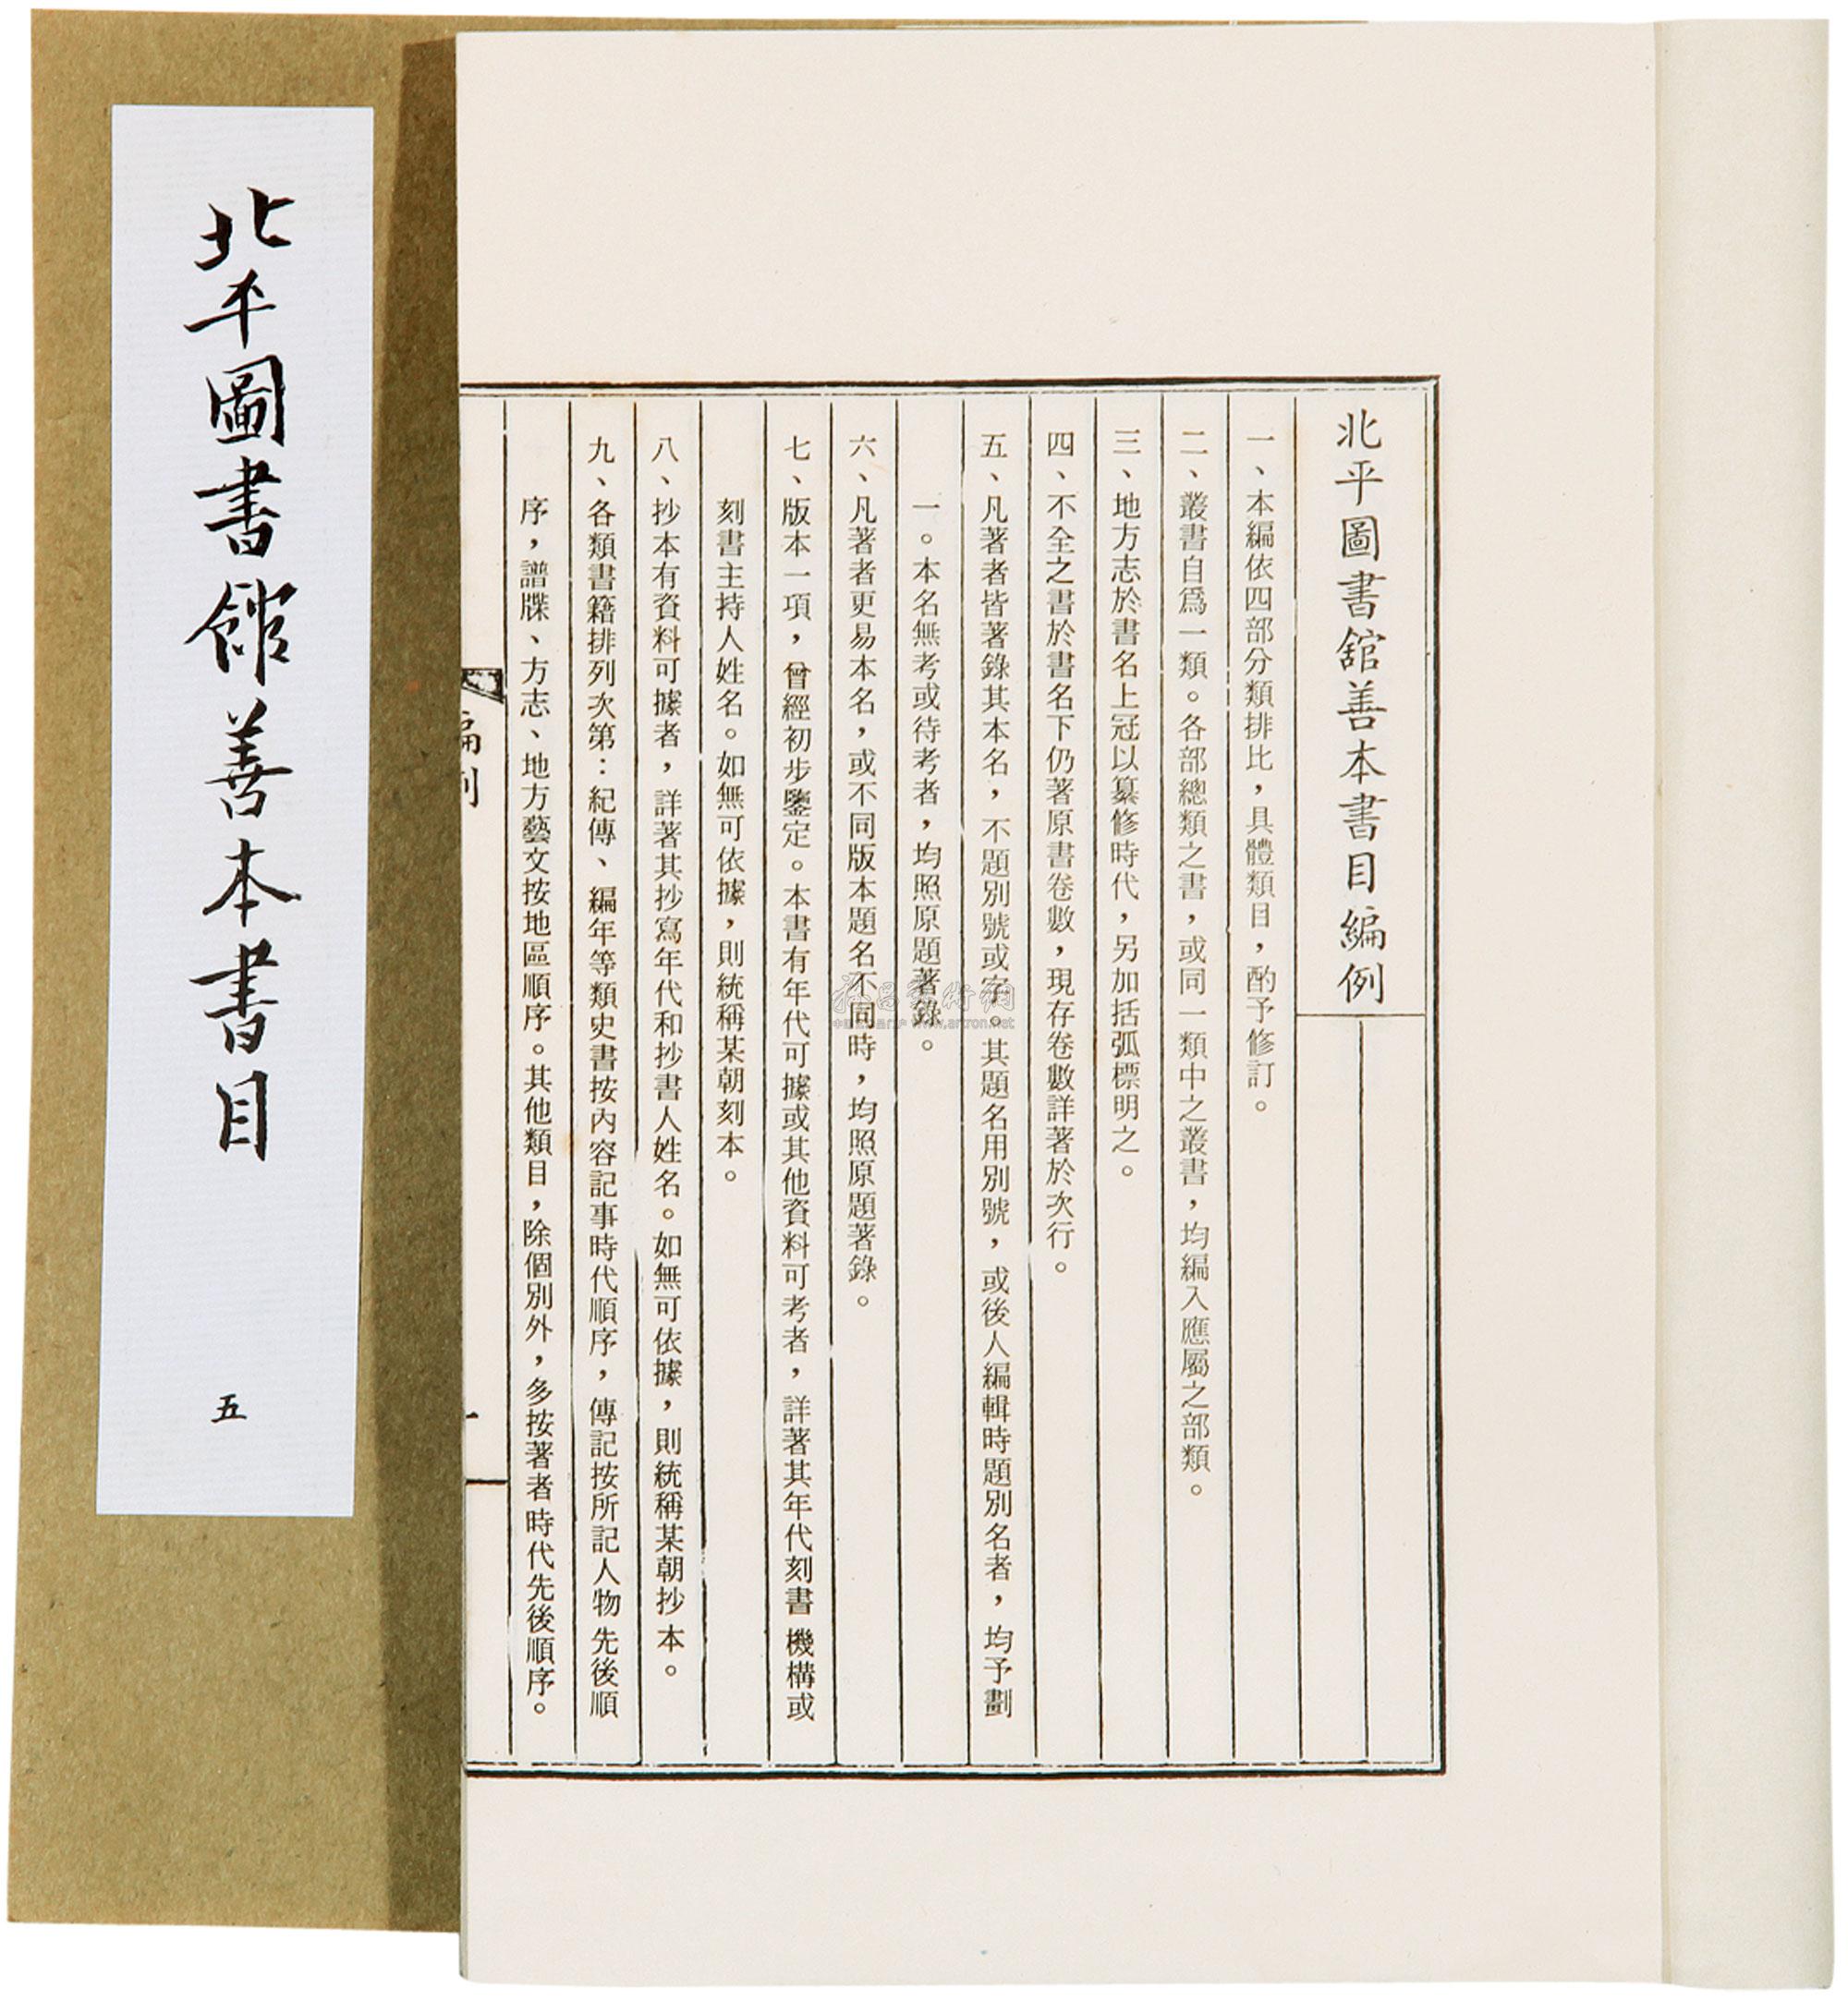 北平圖書館善本書目
五
北平圖書舘善本書目編例
一、本編依四部分類排比，具體類目，酌予修訂。
二、叢書自爲一類。各部總類之書，或同一類中之叢書，均編入應屬之部類。
三、地方志於書名上冠以纂修時代，另加括弧標明之。
四、不全之書於書名下仍著原書卷數，現存卷數詳著於次行。
五、凡著者皆著錄其本名，不題別號或字。其題名用別號，或後人編輯時題別名者，均予劃
一。本名無考或待考者，均照原題著錄。
六、凡著者更易本名，或不同版本題名不同時，均照原題著錄。
七、版本一項，曾經初步鑒定。本書有年代可據或其他資料可考者，詳著其年代刻書機構或
刻書主持人姓名。如無可依據，則統稱某朝刻本。
八、抄本有資料可據者，詳著其抄寫年代和抄書人姓名。如無可依據，則統稱某朝抄本。
九、各類書籍排列次第：紀傳、編年等類史書按內容記事時代順序，傳記按所記人物先後順
序，譜牒、方志、地方藝文按地區順序。其他類目，除個別外，多按著者時代先後順序。
編例
一
www.artron.net